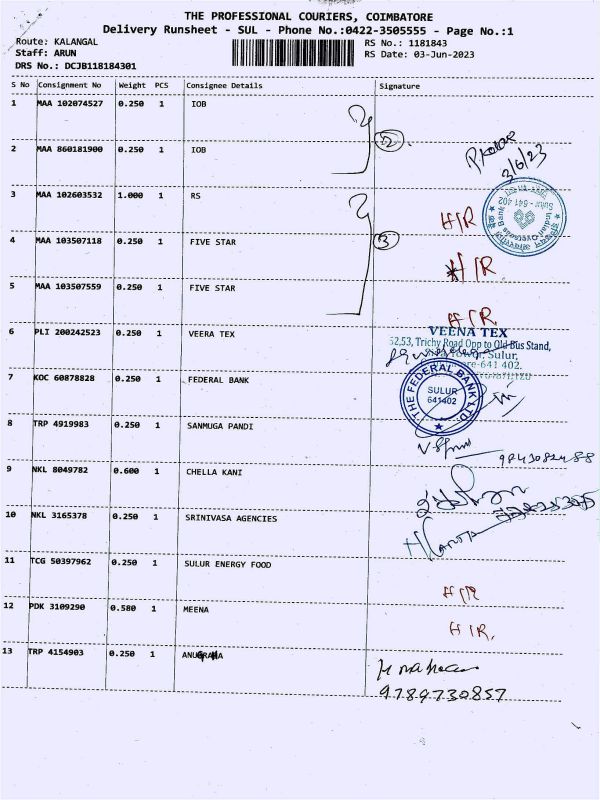 THE PROFESSIONAL COURIERS, COIMBATORE
Delivery Runsheet - SUL - Phone No.:0422-3505555 - Page No.:1
Route: KALANGAL
Staff: ARUN
DRS No.: DCJB118184301
RS No.: 1181843
RS Date: 03-Jun-2023
S No Consignment No Weight PCS Consignee Details Signature
1 MAA 102074527 0.250 1 IOB
2
2 MAA 860181900 0.250 1 IOB
3/6/23
Sulur - 641 402
Indian Overseas Bank
3 MAA 102603532 1.000 1 RS H/R
3
4 MAA 103507118 0.250 1 FIVE STAR H/R
5 MAA 103507559 0.250 1 FIVE STAR H/R
6 PLI 200242523 0.250 1 VEERA TEX
VEENA TEX
52,53, Trichy Road Opp to Old Bus Stand,
Sulur,
641 402.
7 KOC 60878828 0.250 1 FEDERAL BANK
THE FEDERAL BANK LTD.
SULUR
641402
8 TRP 4919983 0.250 1 SANMUGA PANDI
9 NKL 8049782 0.600 1 CHELLA KANI
10 NKL 3165378 0.250 1 SRINIVASA AGENCIES
11 TCG 50397962 0.250 1 SULUR ENERGY FOOD H/R
12 PDK 3109290 0.580 1 MEENA H/R.
13 TRP 4154903 0.250 1
9789730857